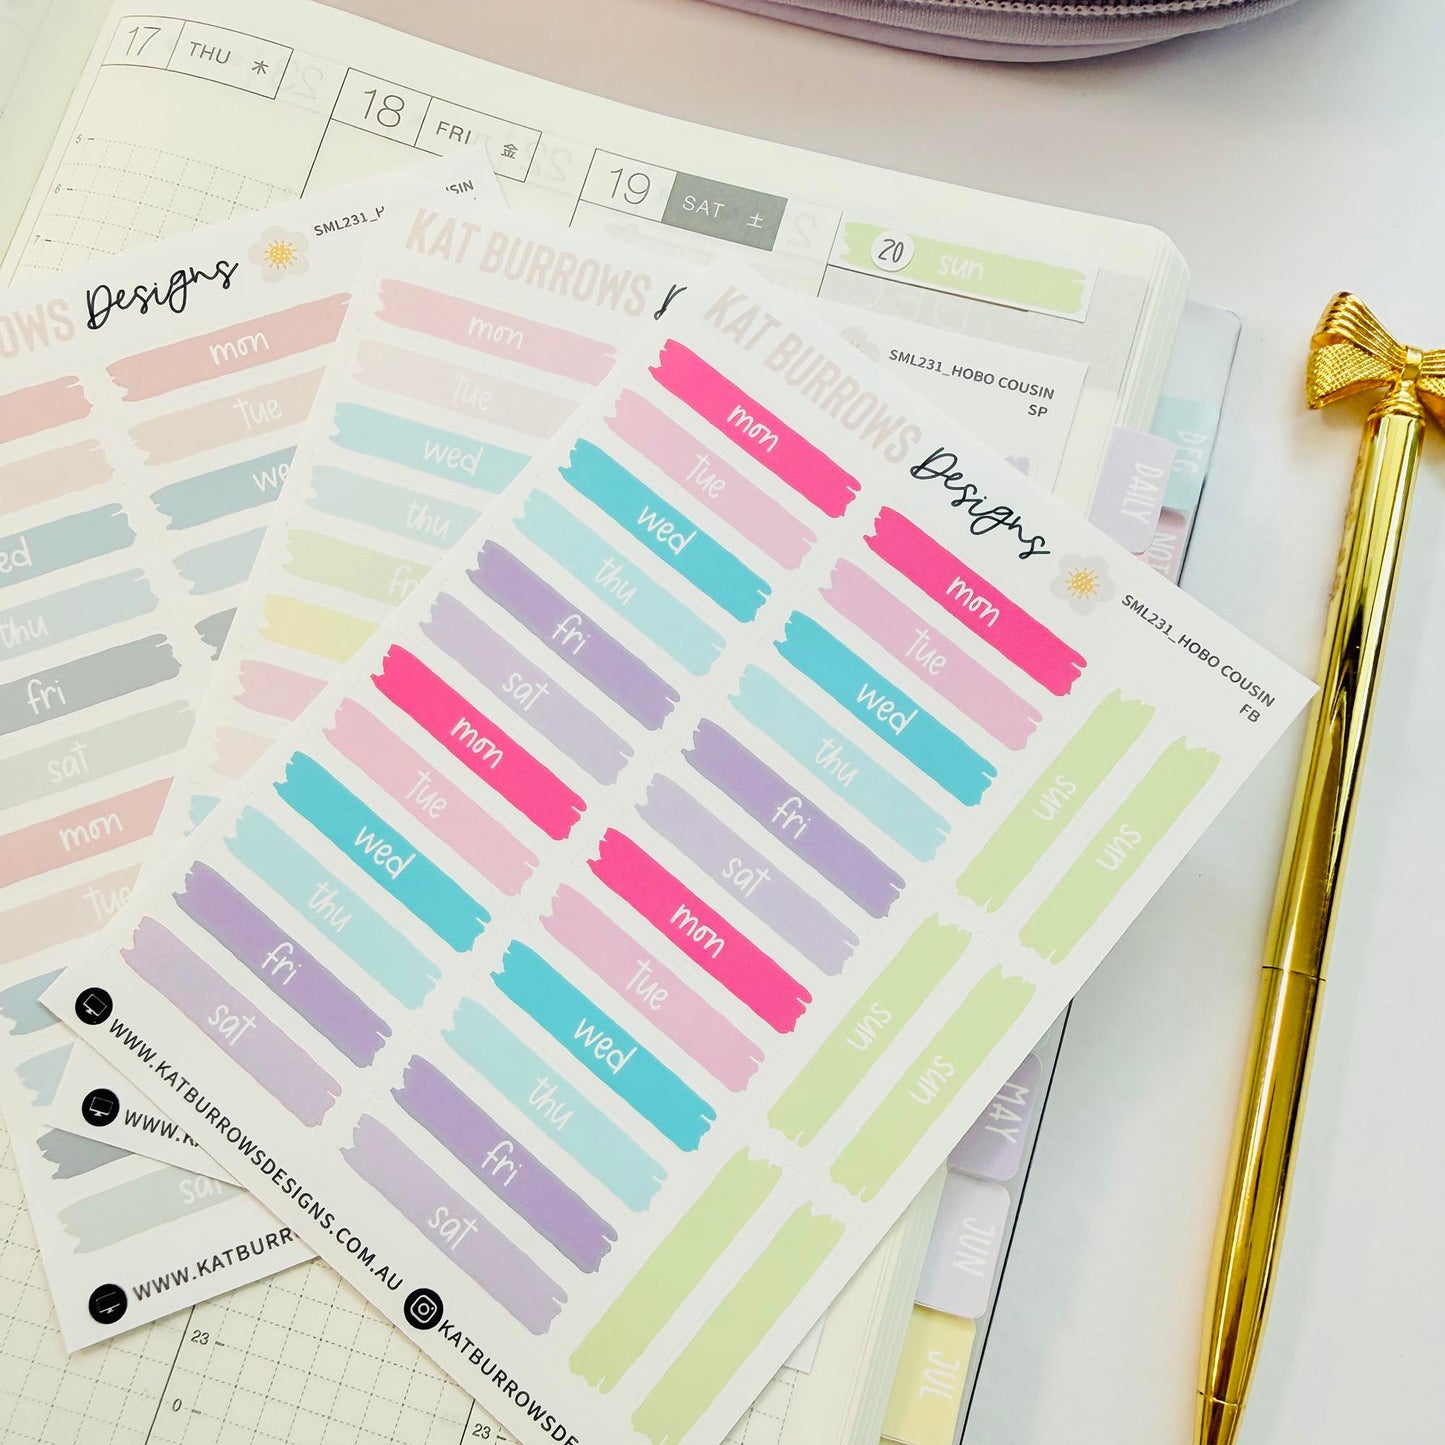 17 THU 木
18 FRI 金
19 SAT 土
20 sun
5
6
7
OWS Designs
SML231_H
mon
tue
we
ed
thu
fri
sat
mon
tue
sat
WWW.KATBURR
KAT BURROWS
SIN
mon
tue
wed
thu
fr
WWW.K
SML231_HOBO COUSIN
SP
KAT BURROWS Designs
SML231_HOBO COUSIN
FB
mon
tue
wed
thu
fri
sat
mon
tue
wed
thu
fri
sat
mon
tue
wed
thu
fri
sat
mon
tue
wed
thu
fri
sat
sun
sun
sun
sun
WWW.KATBURROWSDESIGNS.COM.AU
KATBURROWSDE
DEC
DAILY
NOT
MAY
JUN
JUL
23
0
23